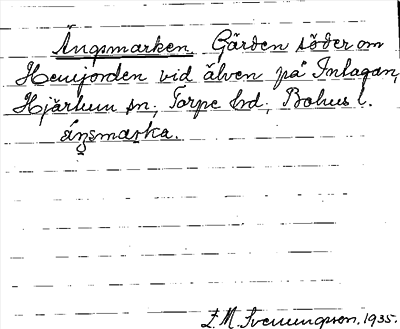 Ängsmarken. Gärden söder om
Hemjorden vid älven på Inlagan,
Hjärtum sn; Torpe hd; Bohus l.
áŋsmarka.
E. M. Svenungson. 1935.